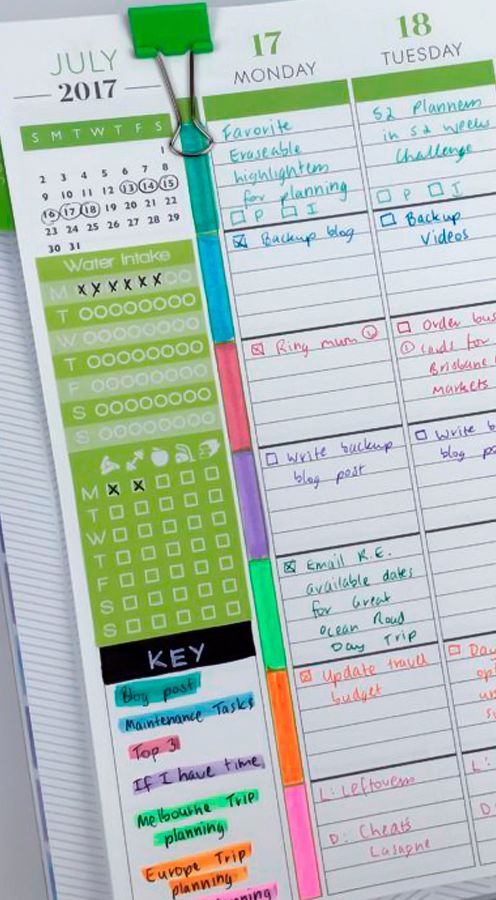 JULY
2017
S M T W T F S
1
2 3 4 5 6 7 8
9 10 11 12 13 14 15
16 17 18 19 20 21 22
23 24 25 26 27 28 29
30 31
Water Intake
M
T
W
T
F
S
S
M
T
W
T
F
S
S
KEY
Blog post
Maintenance Tasks
Top 3
If I have time
Melbourne Trip
planning
Europe Trip
planning
17
MONDAY
Favorite
Eraseable
highlighters
for planning
P I
Backup blog
Ring mum 1
Write backup
blog post
Email R.E.
available dates
for Great
Ocean Road
Day Trip
Update travel
budget
L: Leftovers
D: Cheats
Lasagne
18
TUESDAY
52 Planners
in 52 weeks
Challenge
P I
Backup
Videos
Order bus
1 cards for
Brisbane
Markets
Write b
blog po
Day
L:
D: